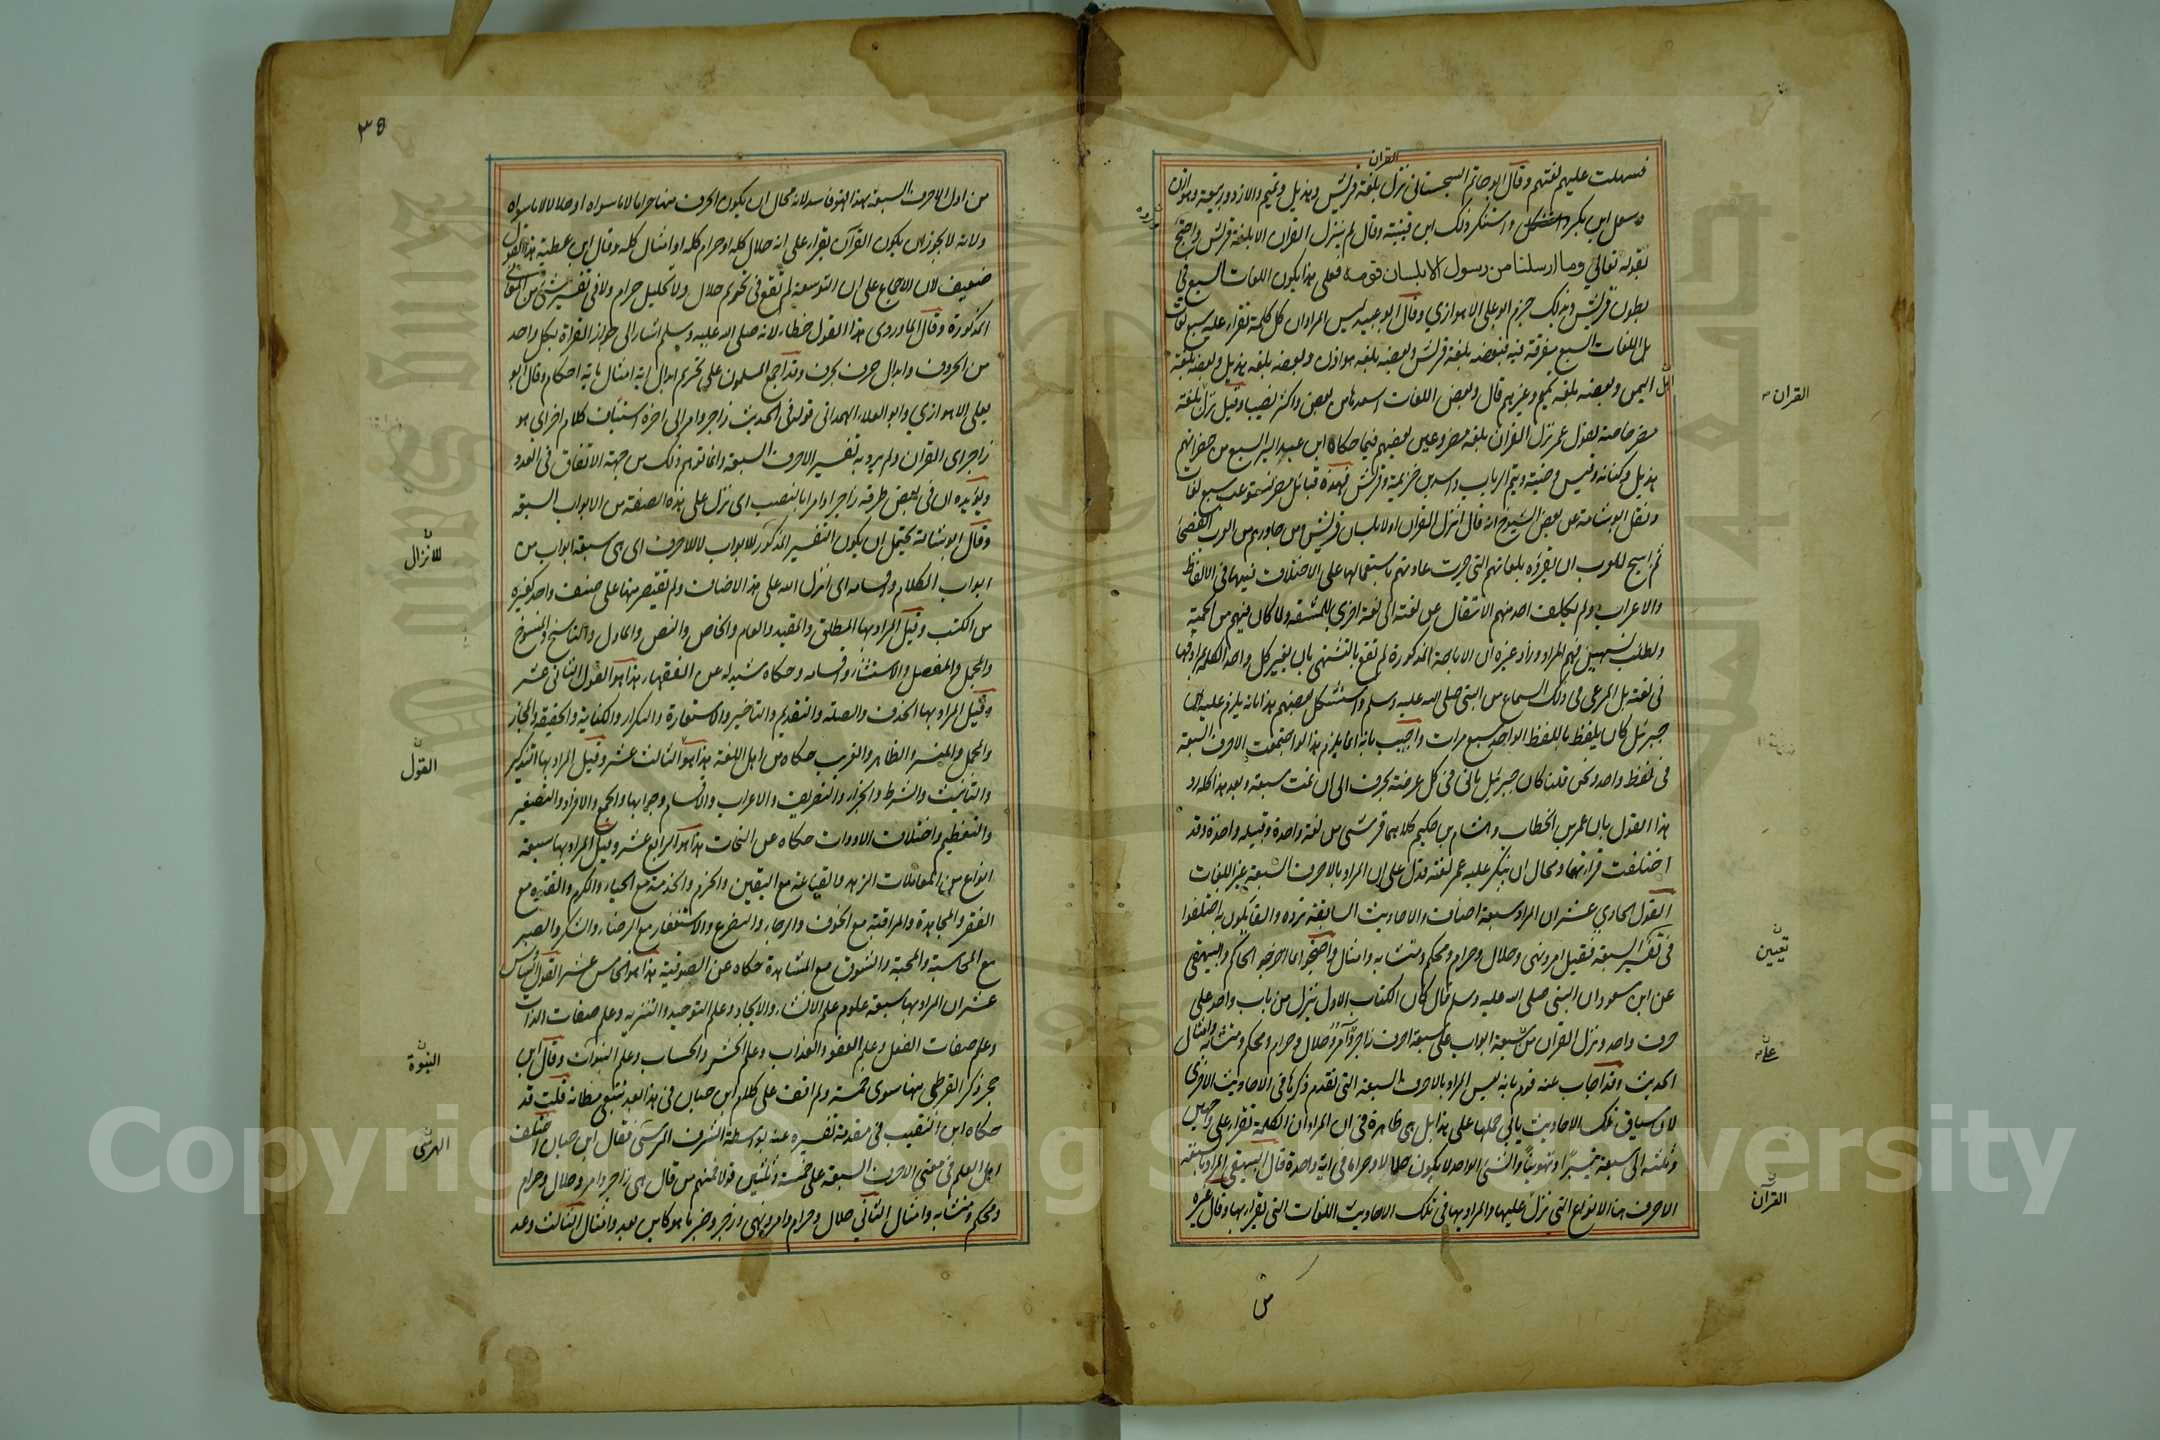 القران
فسهلت عليهم لغتهم وقال ابو حاتم السجستاني نزل بلغة قريش وهذيل وتميم والازد وربيعة وهوازن
وسعد ابن بكر واستنكر ذلك ابن قتيبة وقال لم ينزل القران الا بلغة قريش واحتج
بقوله تعالى وما ارسلنا من رسول الا بلسان قومه فعلى هذا يكون اللغات السبع في
بطون قريش وبذلك جزم ابو على الاهوازي وقال ابو عبيد ليس المراد ان كل كلمة تقراء على سبع لغات
بل اللغات السبع مفرقة فيه فبعضه بلغة قريش وبعضه بلغه هوازن وبعضه بلغه هذيل وبعضه بلغة
اهل اليمن وبعضه بلغه تميم وغيرهم قال وبعض اللغات اسعد بها من بعض واكثر نصيبا وقيل نزل بلغة
مضر خاصة لقول عمر نزل القران بلغة مضر وعين بعضهم فيما حكاه ابن عبد البر السبع من مضر انهم
هذيل وكنانة وقيس وضبة وتيم الرباب واسد بن خزيمة وقريش فهذه قبائل مضر تستوعب سبع لغات
ونقل ابو شامة عن بعض الشيوخ انه قال انزل القران اولا بلسان قريش ومن جاورهم من العرب الفصحا
ثم ابيح للعرب ان يقرؤه بلغاتهم التي جرت عادتهم باستعمالها على الاختلاف فيها في الالفاظ
والاعراب ولم يكلف احد منهم الانتقال عن لغته الى لغة اخرى للمشقه ولما كان فيهم من الحمية
ولطلب تسهيل فهم المراد وزاد غيره ان الاباحة المذكورة لم تقع بالتشهي بان يغير كل واحد الكلمة بمرادفها
في لغته بل المرعى في ذلك السماع من النبي صلى الله عليه وسلم واستشكل بعضهم هذا بانه يلزم عليه ان
جبرئيل كان يلفظ باللفظ الواحد سبع مرات واجيب بانه انما يلزم هذا لو اجتمعت الاحرف السبعة
في لفظ واحد ونحن قلنا كان جبرئيل ياتي في كل عرضة بحرف الى ان تمت سبعة وبعد هذا كله رد
هذا القول بان عمر بن الخطاب وهشام بن حكيم كلاهما قرشى من لغة واحدة وقبيله واحدة وقد
اختلفت قراءتهما ومحال ان ينكر عليه عمر لغته فدل على ان المراد بالاحرف السبعة غير اللغات
القول الحادي عشر ان المراد سبعة اصناف والاحاديث السابقة ترده والقائلون به اختلفوا
في تعيين السبعة فقيل امر ونهى وحلال وحرام ومحكم ومتشابه وامثال واحتجوا بما اخرجه الحاكم والبيهقي
عن ابن مسعود ان النبي صلى الله عليه وسلم قال كان الكتاب الاول ينزل من باب واحد على
حرف واحد ونزل القران من سبعة ابواب على سبعة احرف زاجر وآمر وحلال وحرام ومحكم ومتشابه وامثال
الحديث وقد اجاب عنه قوم بانه ليس المراد بالاحرف السبعة التي تقدم ذكرها في الاحاديث الاخرى
لان سياق تلك الاحاديث يابى حملها على هذا بل هي ظاهرة في ان المراد ان الكلمة تقراء على وجهين
وثلثة الى سبعة تيسيرا وتهوينا والشي الواحد لا يكون حلالا وحراما في اية واحدة قال البيهقي المراد بسبعة
الاحرف هنا الانواع التي نزل عليها والمراد بها في تلك الاحاديث اللغات التي يقراء بها وقال غيره
من
القران
تعيين
عليه
القرآن
٣٥
من اول الاحرف السبعة بهذا فهو فاسد لانه محال ان يكون الحرف منها حراما لا ما سواه او حلالا لا ما سواه
ولانه لا يجوز ان يكون القرآن يقراء على انه حلال كله او حرام كله او امثال كله وقال ابن عطية هذا القول
ضعيف لان الاجماع على ان التوسعة لم تقع في تحريم حلال ولا تحليل حرام ولا في تغيير شئ من المعاني
المذكورة وقال الماوردى هذا القول خطاء لانه صلى الله عليه وسلم اشار الى جواز القراة بكل واحد
من الحروف وابدال حرف بحرف وقد اجمع المسلمون على تحريم ابدال اية امثال باية احكام وقال ابو
على الاهوازي وابو العلاء الهمدانى قوله في الحديث زاجر وامر الى اخره استيناف كلام اخر اي هو
زاجر اى القران ولم يرد به تفسير الاحرف السبعة وانما توهم ذلك من جهة الاتفاق في العدد
ويؤيده ان في بعض طرقه زاجرا وامرا بالنصب اى نزل على هذه الصفة من الابواب السبعة
وقال ابو شامة يحتمل ان يكون التفسير المذكور للابواب لا للاحرف اى هى سبعة ابواب من
ابواب الكلام واقسامه اى انزل الله على هذه الاصناف ولم تقتصر منها على صنف واحد كغيره
من الكتب وقيل المراد بها المطلق والمقيد والعام والخاص والنص والماول والناسخ والمنسوخ
والمجمل والمفصل والاستثناء واقسامه وحكاه شيدله عن الفقهاء هذا هو القول الثانى عشر
وقيل المراد بها الحذف والصلة والتقديم والتاخير والاستعارة والتكرار والكناية والحقيقة والمجاز
والمجمل والمفسر والظاهر والغريب حكاه عن اهل اللغة هذا هو الثالث عشر وقيل المراد بها التذكير
والتانيث والشرط والجزاء والتصريف والاعراب والاقسام وجوابها والجمع والافراد والتصغير
والتعظيم واختلاف الادوات حكاه عن النحات هذا هو الرابع عشر وقيل المراد بها سبعة
انواع من المعاملات الزهد والقناعة مع اليقين والحزم والخدمة مع الحياء والكرم والفتوة مع
الفقر والمجاهدة والمراقبة مع الخوف والرجاء والتضرع والاستغفار مع الرضاء والشكر والصبر
مع المحاسبة والمحبة والشوق مع المشاهدة حكاه عن الصوفية هذا هو الخامس عشر القول السادس
عشر ان المراد بها سبعة علوم علم الانشاء والايجاد وعلم التوحيد والتنزيه وعلم صفات الذات
وعلم صفات الفعل وعلم العفو والعذاب وعلم الحشر والحساب وعلم النبوات وقال ابن
حجر ذكر القرطبى منها سوى خمسة ولم اقف على كلام ابن حبان في هذا بعد تتبعى مظانه قلت قد
حكاه ابن النقيب في مقدمة تفسيره عنه بواسطة الشرف المرسى فقال ابن حبان اختلف
اهل العلم في معنى الاحرف السبعة على خمسة وثلثين قولا فمنهم من قال هى زاجر وامر وحلال وحرام
ومحكم ومتشابه وامثال الثاني حلال وحرام وامر ونهى وزجر وخبر ما هو كاين بعد وامثال الثالث وعد
للانزال
القول
النبوة
المرسى